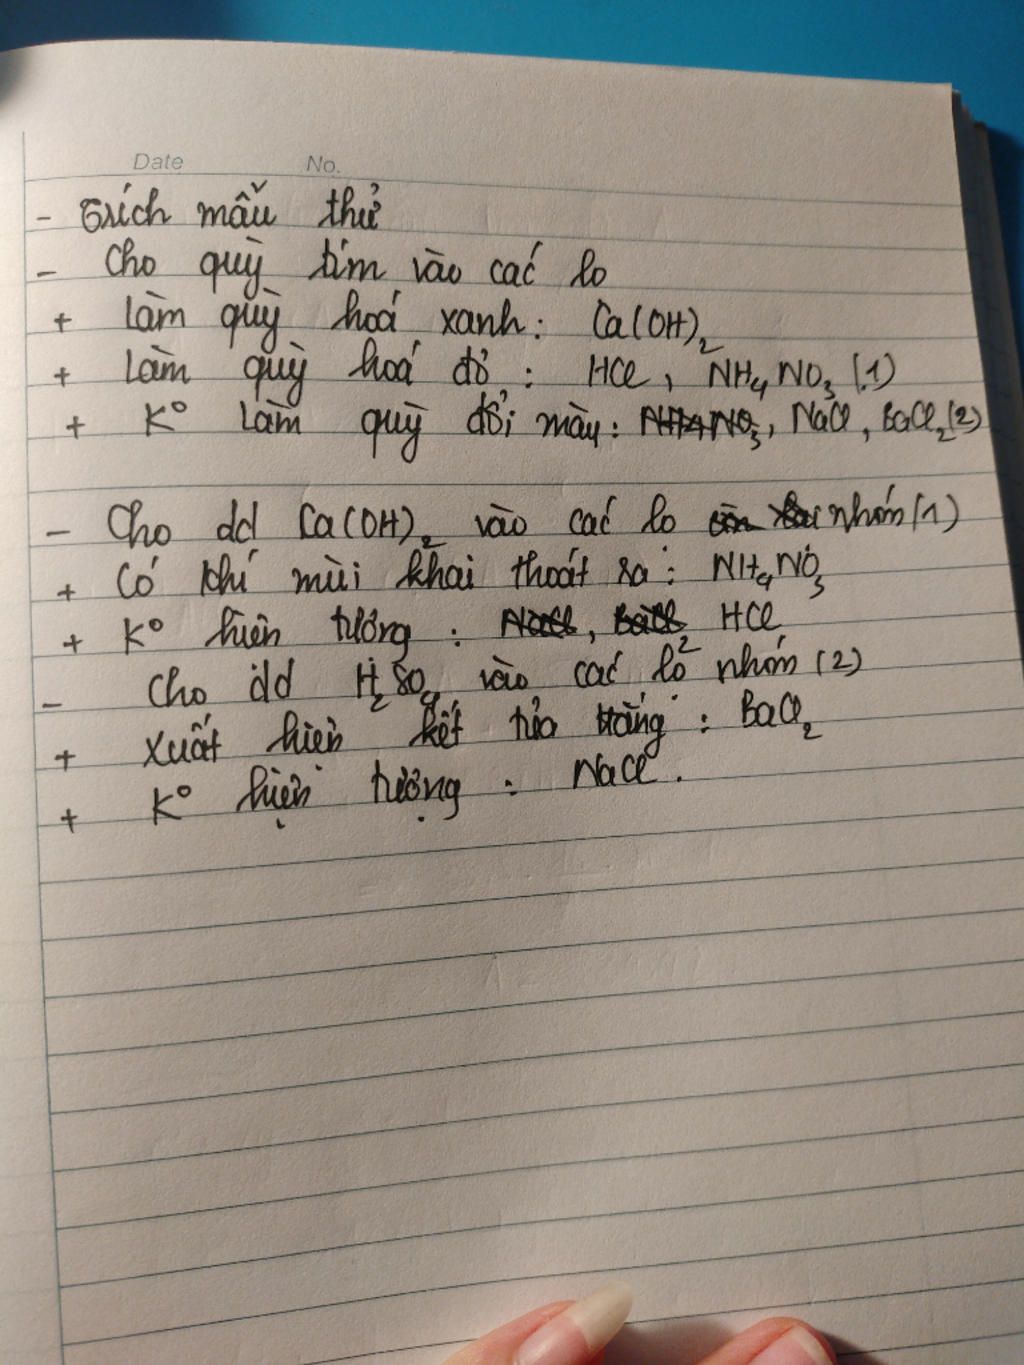 Date No.
- Trích mẫu thử
- Cho quỳ tím vào các lọ
+ Làm quỳ hoá xanh: Ca(OH)₂
+ Làm quỳ hoá đỏ: HCl, NH₄NO₃ (1)
+ K° làm quỳ đổi màu: NH4NO₃, NaCl, BaCl₂(2)
- Cho dd Ca(OH)₂ vào các lọ còn nhóm(1)
+ Có khí mùi khai thoát ra: NH₄NO₃
+ K° hiện tượng: NaCl, BaCl₂ HCl
- Cho dd H₂SO₄ vào các lọ nhóm (2)
+ Xuất hiện kết tủa trắng: BaCl₂
+ K° hiện tượng: NaCl.